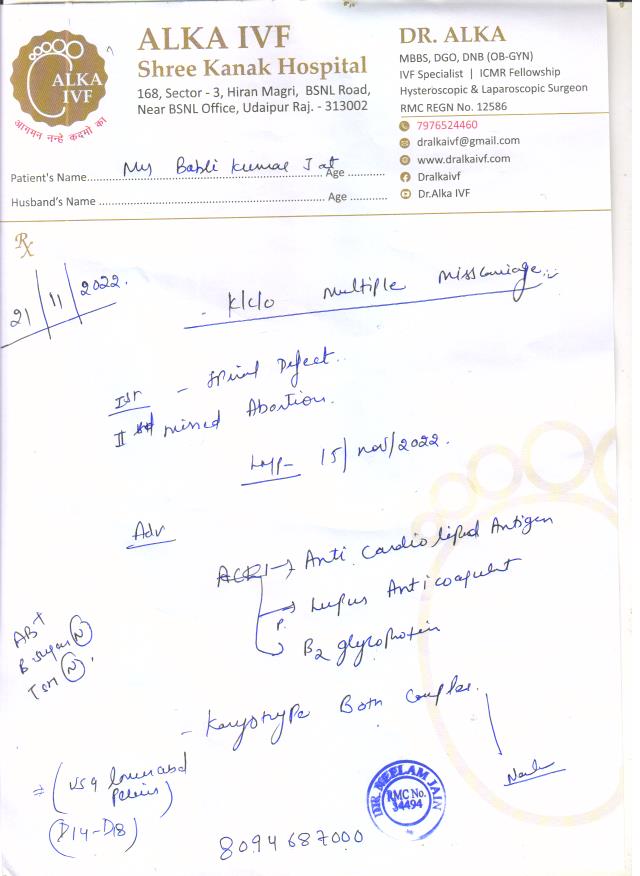 ALKA IVF
Shree Kanak Hospital
168, Sector - 3, Hiran Magri, BSNL Road,
Near BSNL Office, Udaipur Raj. - 313002
ALKA
IVF
आगमन नन्हे कदमों का
DR. ALKA
MBBS, DGO, DNB (OB-GYN)
IVF Specialist | ICMR Fellowship
Hysteroscopic & Laparoscopic Surgeon
RMC REGN No. 12586
7976524460
dralkaivf@gmail.com
www.dralkaivf.com
Dralkaivf
Dr.Alka IVF
Patient's Name Mrs Babli Kumar Jat Age
Husband's Name Age
Rx
21/11/2022.
- K/C/O Multiple Misscarriage
Ist - Spinal Defect.
II missed Abortion.
LMP - 15/Nov/2022.
Adv
Anti Cardiolipid Antigen
P. Lupus Anticoagulent
B2 glycoprotein
AB+
B. sugar N
TSH N
- Karyotype Both Couples.
⇒ (USG lower abd
Pelvis)
(D14-D18)
8094687000
DR. NEELAM JAIN
RMC No.
34494